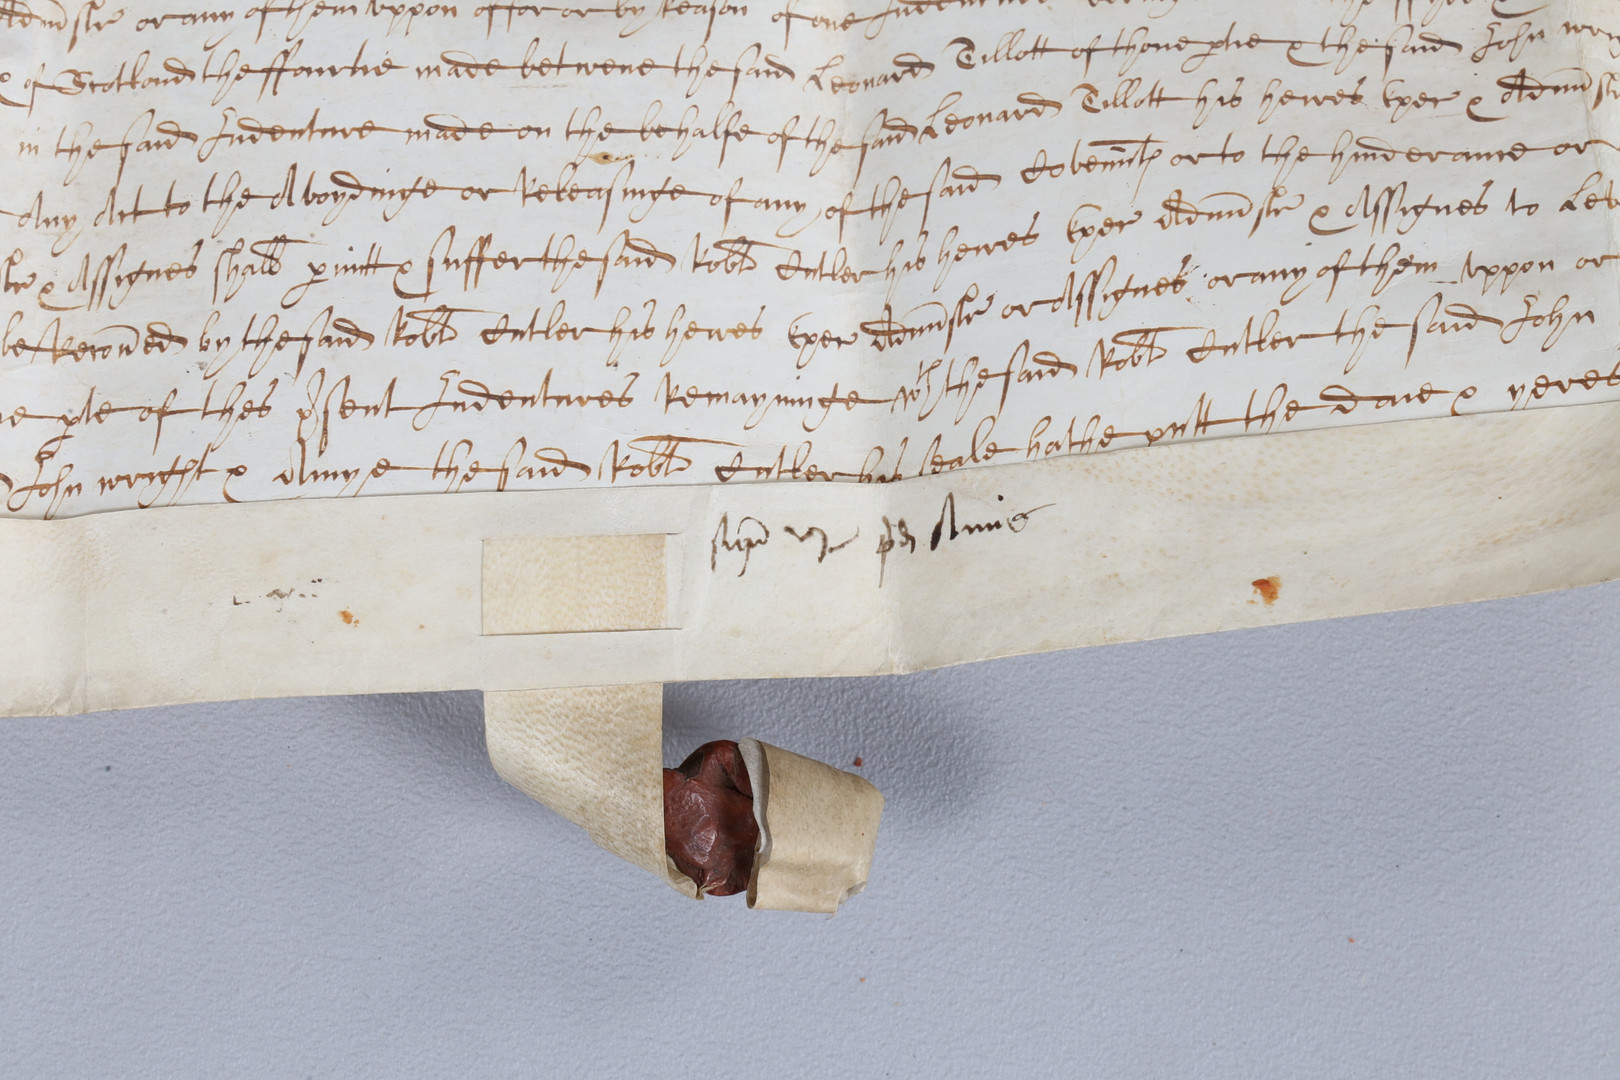 Admistr or any of them uppon of for or by Reason of one Indenture
& of Scotland the ffourtie made betwene the said Leonard Tillott of thone ptie & the said John
in the said Indenture made on the behalfe of the said Leonard Tillott his heires Exer & Admistr
Any Act to the Avoydinge or Releasinge of any of the said Covennts or to the hinderance or
& Assignes shall pmitt & suffer the said Robt Cutler his heires Exer Admistr & Assignes to
be Recovred by the said Robt Cutler his heires Exer Admistr or Assignes or any of them uppon or
pte of thes psent Indentures Remayninge wth the said Robt Cutler the said John
John wright & Amye the said Robt Cutler his seale hathe putt the daie & yeres